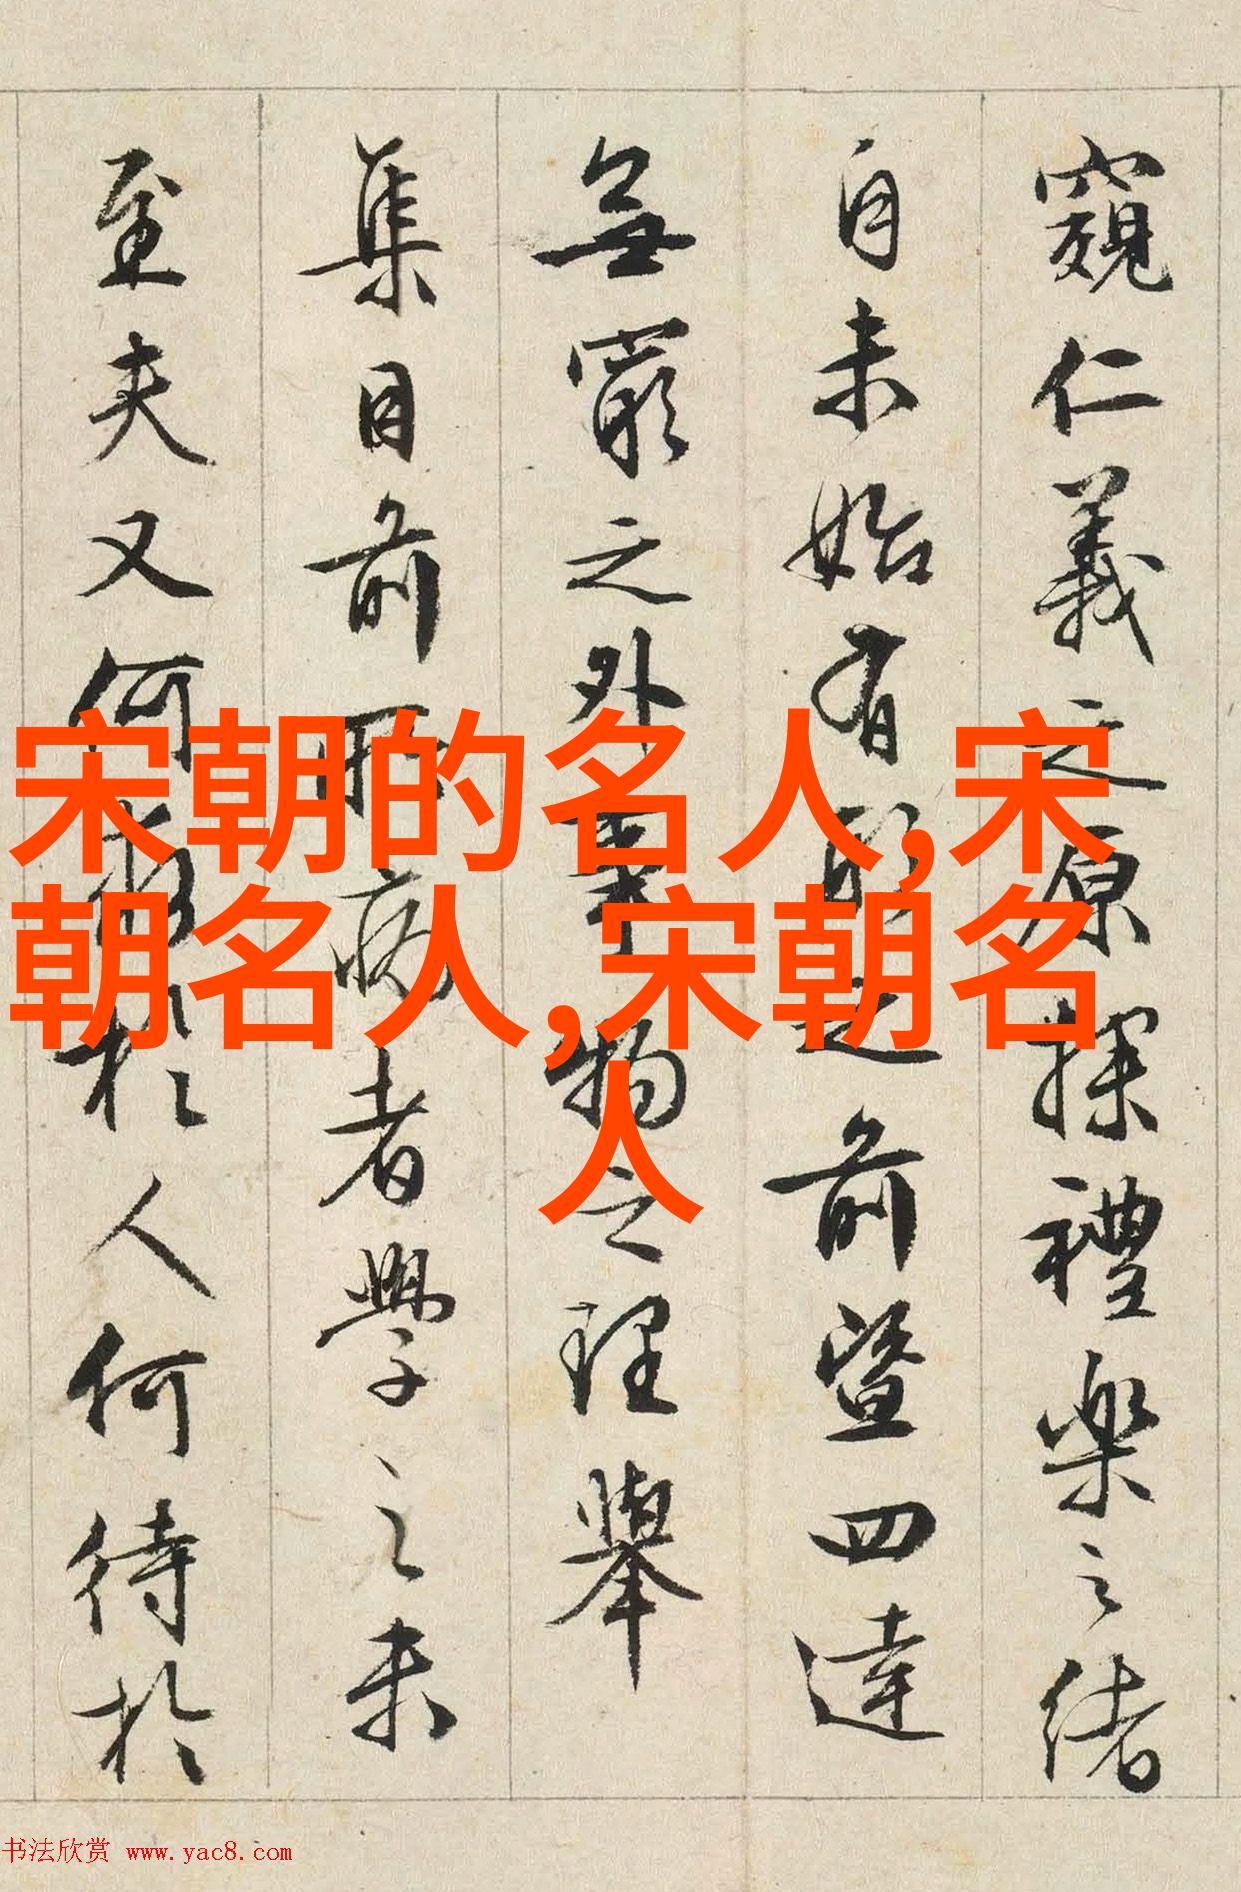 窺仁義之原探禮樂之緒
自未始有形之前暨四達
無窮之外事物之理舉
集目前所病者學之未
至夫又何求於人何待於
宋朝的名人,宋
朝名人,宋朝名
人
书法欣赏 www.yac8.com